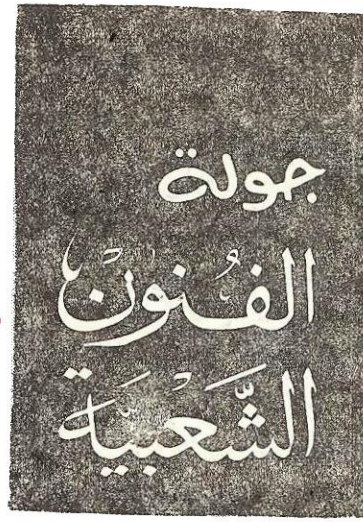 جولة
الفُنون
الشَّعْبيَّة